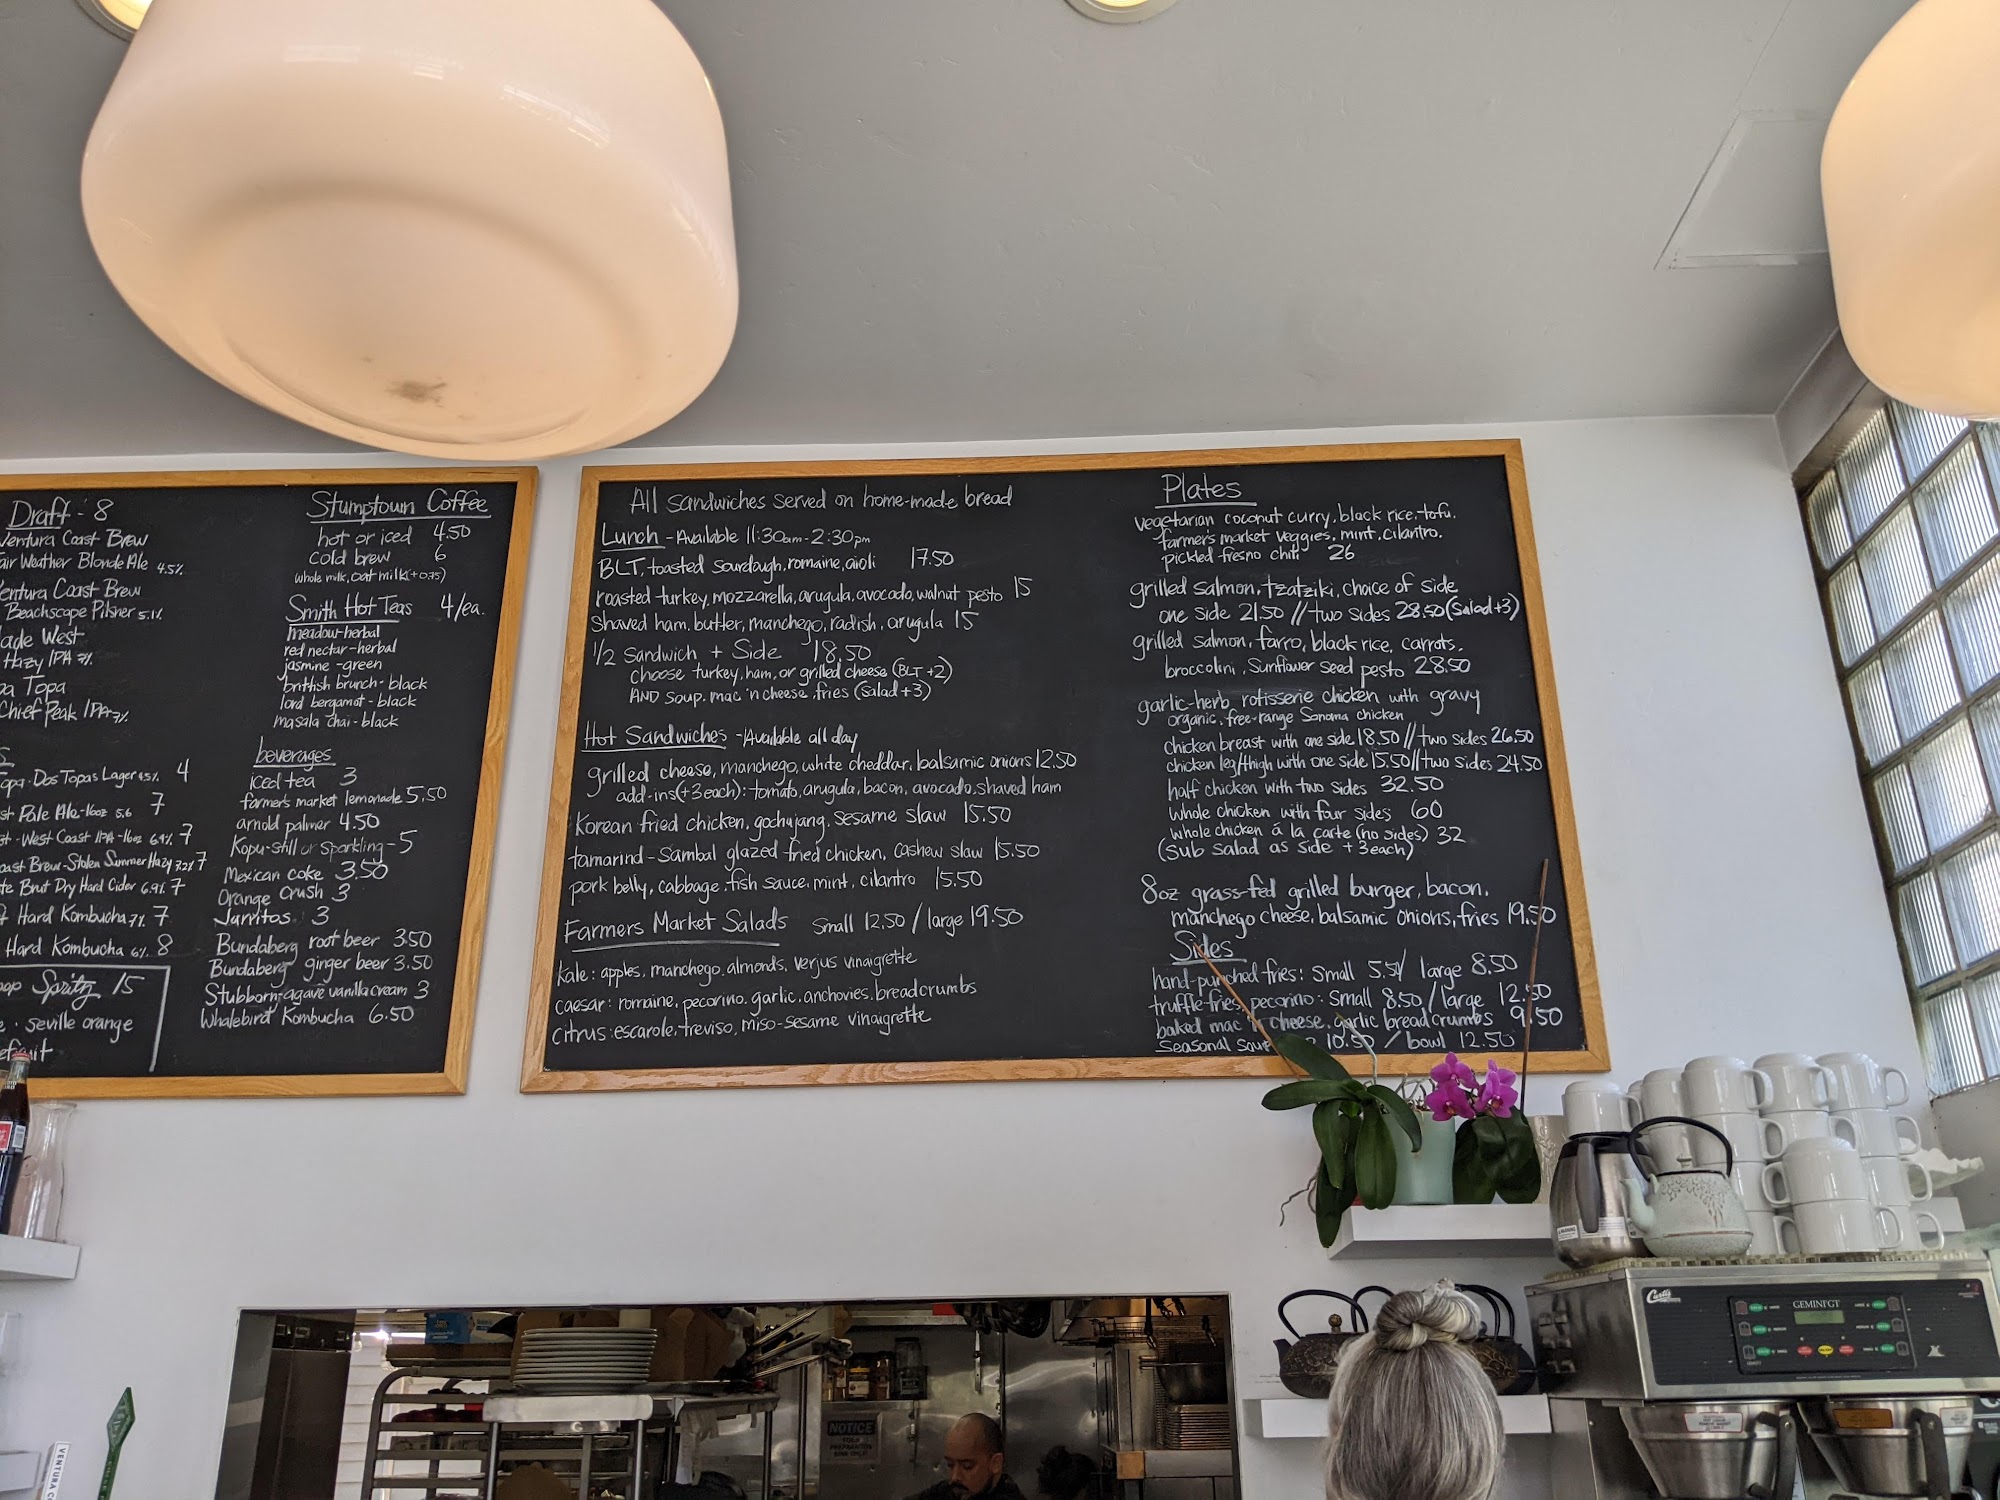 Draft - 8
Ventura Coast Brew
Fair Weather Blonde Ale 4.5%
Ventura Coast Brew
Beachscape Pilsner 5.1%
Made West
Hazy IPA 7%
Topa Topa
Chief Peak IPA 7%
Topa - Dos Topas Lager 4.5% 4
Pale Ale - 16oz 5.6 7
- West Coast IPA - 16oz 6.9% 7
Coast Brew - Stolen Summer Hazy 7.2% 7
Brut Dry Hard Cider 6.9% 7
Hard Kombucha 7% 7
Hard Kombucha 6% 8
Spritz 15
seville orange
Stumptown Coffee
hot or iced 4.50
cold brew 6
whole milk, oat milk (+0.75)
Smith Hot Teas 4/ea.
meadow-herbal
red nectar-herbal
jasmine-green
brittish brunch-black
lord bergamot-black
masala chai-black
beverages
iced tea 3
farmer's market lemonade 5.50
arnold palmer 4.50
Kopu-still or sparkling - 5
Mexican coke 3.50
Orange Crush 3
Jarritos 3
Bundaberg root beer 3.50
Bundaberg ginger beer 3.50
Stubborn-agave vanilla cream 3
Whalebird Kombucha 6.50
All sandwiches served on home-made bread
Lunch - Available 11:30am - 2:30pm
BLT, toasted sourdough, romaine, aioli 17.50
roasted turkey, mozzarella, arugula, avocado, walnut pesto 15
shaved ham, butter, manchego, radish, arugula 15
1/2 Sandwich + Side 18.50
choose turkey, ham, or grilled cheese (BLT +2)
AND soup, mac 'n cheese, fries (Salad +3)
Hot Sandwiches - Available all day
grilled cheese, manchego, white cheddar, balsamic onions 12.50
add-ins (+3 each): tomato, arugula, bacon, avocado, shaved ham
Korean fried chicken, gochujang, sesame slaw 15.50
tamarind-sambal glazed fried chicken, cashew slaw 15.50
pork belly, cabbage, fish sauce, mint, cilantro 15.50
Farmers Market Salads small 12.50 / large 19.50
kale: apples, manchego, almonds, verjus vinaigrette
caesar: romaine, pecorino, garlic, anchovies, breadcrumbs
citrus: escarole, treviso, miso-sesame vinaigrette
Plates
vegetarian coconut curry, black rice, tofu,
farmer's market veggies, mint, cilantro,
pickled fresno chili 26
grilled salmon, tzatziki, choice of side
one side 21.50 // two sides 28.50 (Salad +3)
grilled salmon, farro, black rice, carrots,
broccolini, sunflower seed pesto 28.50
garlic-herb rotisserie chicken with gravy
organic, free-range Sonoma chicken
chicken breast with one side 18.50 // two sides 26.50
chicken leg/thigh with one side 15.50 // two sides 24.50
half chicken with two sides 32.50
whole chicken with four sides 60
whole chicken á la carte (no sides) 32
(sub salad as side +3 each)
8oz grass-fed grilled burger, bacon,
manchego cheese, balsamic onions, fries 19.50
Sides
hand-punched fries: small 5.50/ large 8.50
truffle fries, pecorino: small 8.50 / large 12.50
baked mac n cheese, garlic breadcrumbs 9.50
seasonal 10.50 / bowl 12.50
NOTICE
FOOD
PREPARATION
SINK ONLY
Curtis
GEMINI GT